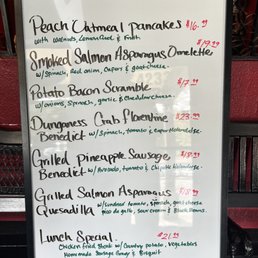 Peach Oatmeal Pancakes $16.99
with walnuts, Lemon Curd & Fruit
Smoked Salmon Asparagus Omelette $19.99
w/ Spinach, Red onion, Capers & goat cheese
Potato Bacon Scramble $17.99
w/ onions, Spinach, garlic & cheddar cheese
Dungeness Crab Florentine $23.99
Benedict w/ Spinach, tomato &
Grilled Pineapple Sausage $18.99
Benedict w/ Avocado, tomato & Chipotle Hollandaise
Grilled Salmon Asparagus $18.99
Quesadilla w/ tomato, spinach, goat cheese
pico de gallo, sour cream & Black Beans
Lunch Special $21.99
Chicken fried Steak w/ Country potato, Vegetables
Homemade Sausage Gravy & Bisquit